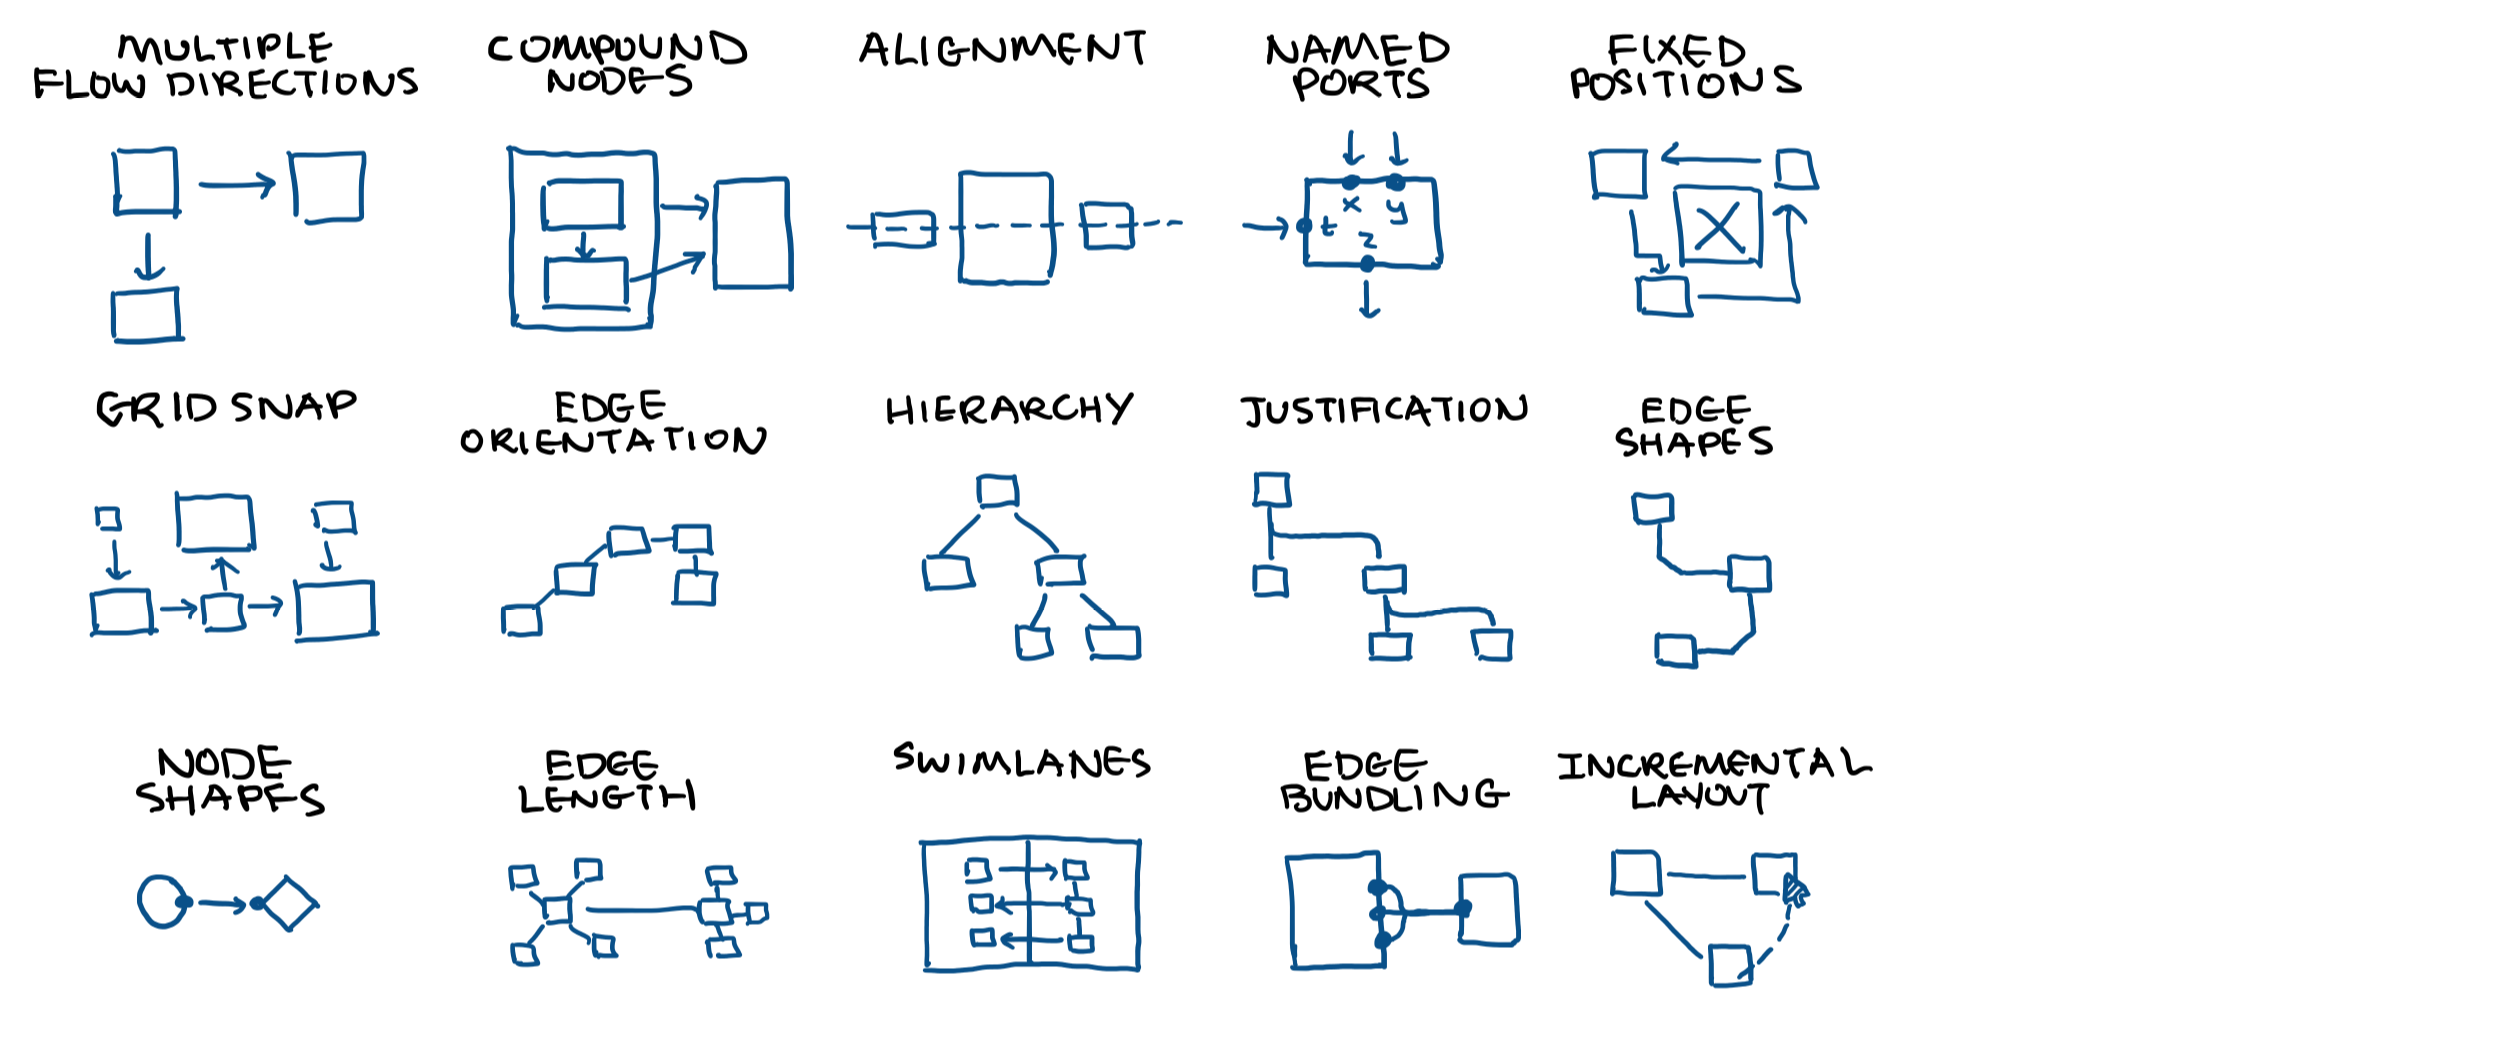 MULTIPLE
FLOW DIRECTIONS
COMPOUND
NODES
ALIGNMENT
NAMED
PORTS
FIXED
POSITIONS
x
y
t
z
GRID SNAP
EDGE
ORIENTATION
HIERARCHY
JUSTIFICATION
EDGE
SHAPES
NODE
SHAPES
EDGE
LENGTH
SWIMLANES
EDGE
BUNDLING
INCREMENTAL
LAYOUT